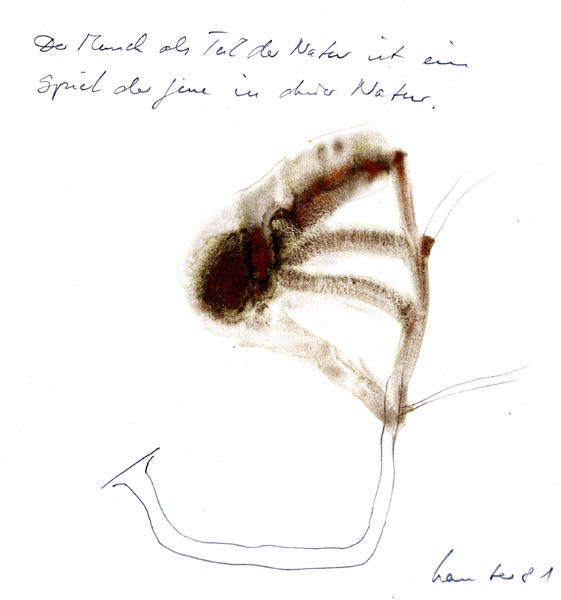 Der Mensch als Teil der Natur ist ein
Spiel der Gene in dieser Natur.
81